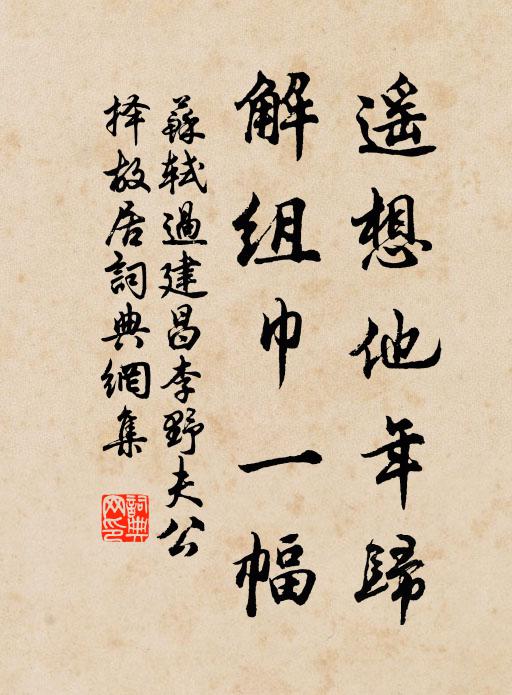 遥想他年歸
解組巾一幅
蘇軾過建昌李野夫公
择故居詞典網集
詞典
网印